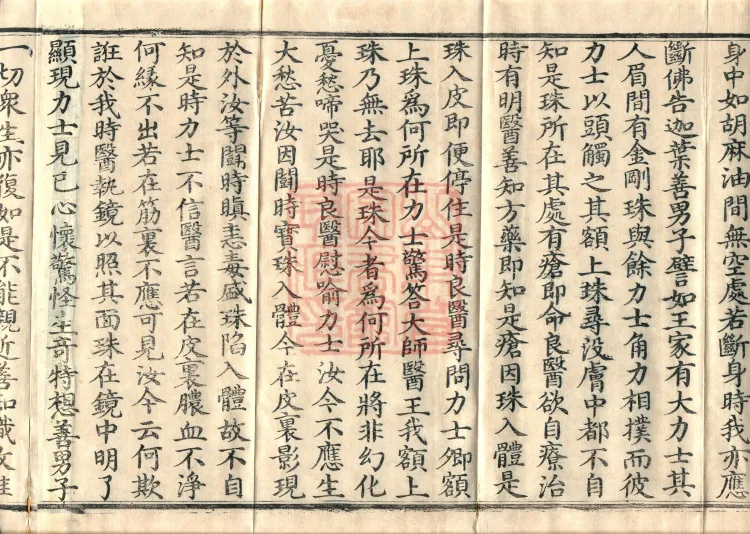 身中如胡麻油間無空處若斷身時我亦應
斷佛告迦葉善男子譬如王家有大力士其
人眉間有金剛珠與餘力士角力相撲而彼
力士以頭觸之其額上珠尋没膚中都不自
知是珠所在其處有瘡即命良醫欲自療治
時有明醫善知方藥即知是瘡因珠入體是
珠入皮即便停住是時良醫尋問力士卿額
上珠爲何所在力士驚答大師醫王我額上
珠乃無去耶是珠今者爲何所在將非幻化
憂愁啼哭是時良醫慰喻力士汝今不應生
大愁苦汝因鬪時寶珠入體今在皮裏影現
於外汝等鬪時瞋恚毒盛珠陷入體故不自
知是時力士不信醫言若在皮裏膿血不淨
何緣不出若在筋裏不應可見汝今云何欺
誑於我時醫執鏡以照其面珠在鏡中明了
顯現力士見已心懷驚怪生奇特想善男子
一切衆生亦復如是不能親近善知識故雖